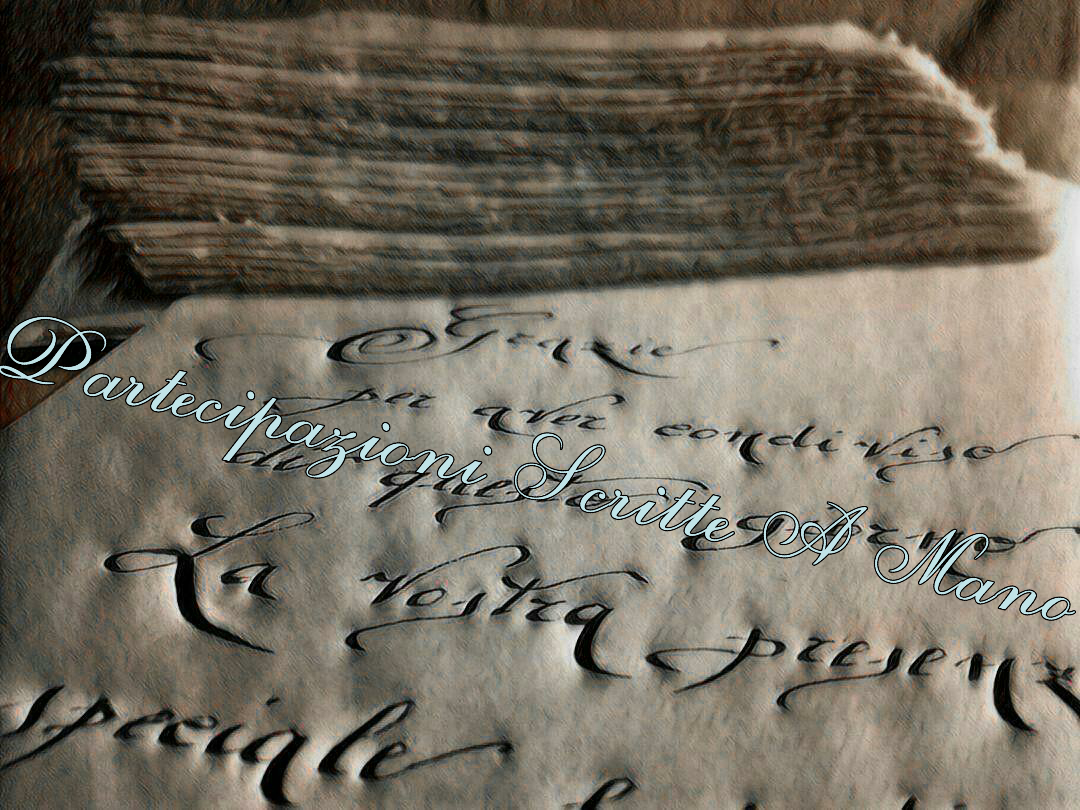 Grazie
per aver condiviso
di questo giorno
La vostra presenz
speciale
Partecipazioni Scritte A Mano